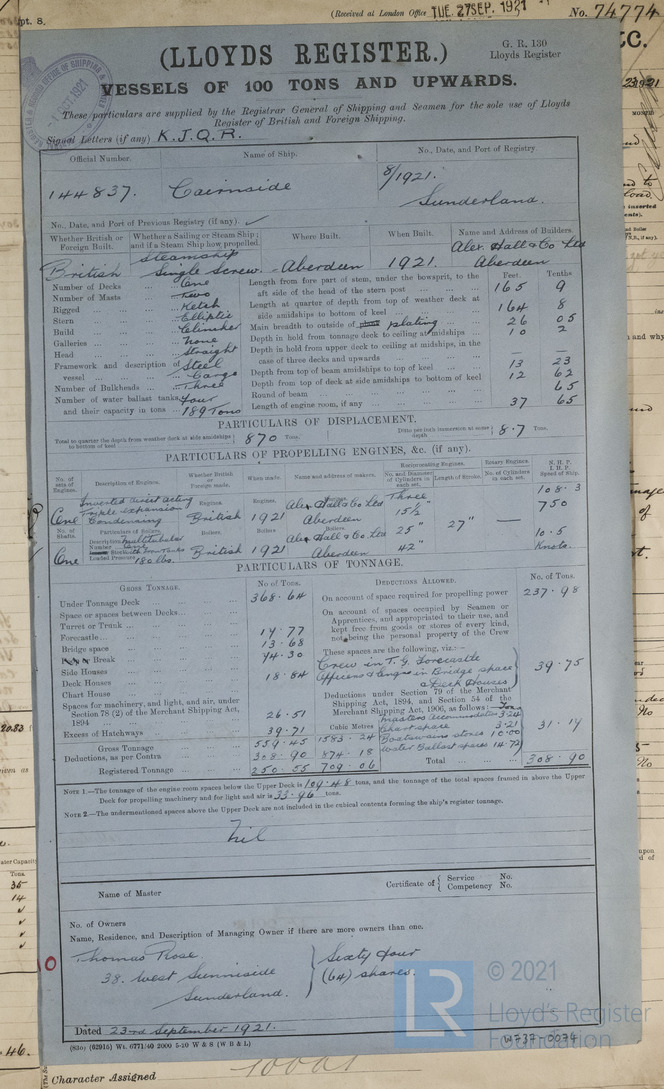 (Received at London Office TUE. 27 SEP. 1921
No. 74774
pt. 8.
(LLOYDS REGISTER.)
G. R. 130
Lloyds Register
VESSELS OF 100 TONS AND UPWARDS.
These particulars are supplied by the Registrar General of Shipping and Seamen for the sole use of Lloyds
Register of British and Foreign Shipping.
Signal Letters (if any) K.J.Q.R.
Official Number. Name of Ship. No., Date, and Port of Registry.
144837. Cairnside 8/1921. Sunderland.
No., Date, and Port of Previous Registry (if any).
Whether British or Foreign Built. Whether a Sailing or Steam Ship; and if a Steam Ship how propelled. Where Built. When Built. Name and Address of Builders.
British Steamship Single Screw. Aberdeen 1921. Alex. Hall & Co Ltd Aberdeen
Number of Decks ... One
Number of Masts ... Two
Rigged ... Ketch
Stern ... Elliptic
Build ... Clincher
Galleries ... None
Head ... Straight
Framework and description of vessel ... Steel Cargo
Number of Bulkheads ... Three
Number of water ballast tanks, and their capacity in tons ... Four 189 Tons
Feet. Tenths
Length from fore part of stem, under the bowsprit, to the aft side of the head of the stern post ... 165 9
Length at quarter of depth from top of weather deck at side amidships to bottom of keel ... 164 8
Main breadth to outside of plating ... 26 05
Depth in hold from tonnage deck to ceiling at midships ... 10 2
Depth in hold from upper deck to ceiling at midships, in the case of three decks and upwards ... — —
Depth from top of beam amidships to top of keel ... 13 23
Depth from top of deck at side amidships to bottom of keel 12 62
Round of beam ... 65
Length of engine room, if any ... 37 65
PARTICULARS OF DISPLACEMENT.
Total to quarter the depth from weather deck at side amidships to bottom of keel 870 Tons. Ditto per inch immersion at same depth 8.7 Tons.
PARTICULARS OF PROPELLING ENGINES, &c. (if any).
No. of sets of Engines. Description of Engines. Whether British or Foreign made. When made. Name and address of makers. Reciprocating Engines. No. and Diameter of Cylinders in each set. Length of Stroke. Rotary Engines. No. of Cylinders in each set. N.H.P. I.H.P. Speed of Ship.
One Inverted direct acting Triple expansion Condensing Engines. British Engines. 1921 Alex Hall & Co Ltd Aberdeen Three 15½" 25" 42" 27" — 108.3 750
No. of Shafts. Particulars of Boilers. Boilers. Boilers. Boilers.
One Description Multitubular Number One Loaded Pressure 180 lbs. British 1921 Alex Hall & Co Ltd Aberdeen 10.5 Knots.
PARTICULARS OF TONNAGE.
GROSS TONNAGE. No. of Tons.
Under Tonnage Deck ... 368.64
Space or spaces between Decks ...
Turret or Trunk ...
Forecastle ... 17.77
Bridge space ... 13.68
Break ... 74.30
Side Houses ...
Deck Houses ... 18.84
Chart House ...
Spaces for machinery, and light, and air, under Section 78 (2) of the Merchant Shipping Act, 1894 ... 26.51
Excess of Hatchways ... 39.71
Cubic Metres
Gross Tonnage 559.45 1583.24
Deductions, as per Contra 308.90 874.18
Registered Tonnage ... 250.55 709.06
DEDUCTIONS ALLOWED. No. of Tons.
On account of space required for propelling power 237.98
On account of spaces occupied by Seamen or Apprentices, and appropriated to their use, and kept free from goods or stores of every kind, not being the personal property of the Crew
These spaces are the following, viz.:—
Crew in T.G. Forecastle
Officers & Engrs in Bridge space & Deck Houses 39.75
Deductions under Section 79 of the Merchant Shipping Act, 1894, and Section 54 of the Merchant Shipping Act, 1906, as follows:— Tons
Masters Accommodation 3.24
Chart space 3.21
Boatswains stores 10.00
Water Ballast space 14.72 31.17
Total ... 308.90
NOTE 1.—The tonnage of the engine room spaces below the Upper Deck is 109.48 tons, and the tonnage of the total spaces framed in above the Upper
Deck for propelling machinery and for light and air is 33.96 tons.
NOTE 2.—The undermentioned spaces above the Upper Deck are not included in the cubical contents forming the ship's register tonnage.
Nil
Name of Master Certificate of { Service No. Competency No.
No. of Owners
Name, Residence, and Description of Managing Owner if there are more owners than one.
Thomas Rose. } Sixty four
38. West Sunniside (64) shares.
Sunderland.
Dated 23rd September 1921.
(836) (62915) Wt. 6771/40 2000 5-20 W & S (W B & L)
LR © 2021
Lloyd's Register
Foundation
W737-0074
Character Assigned